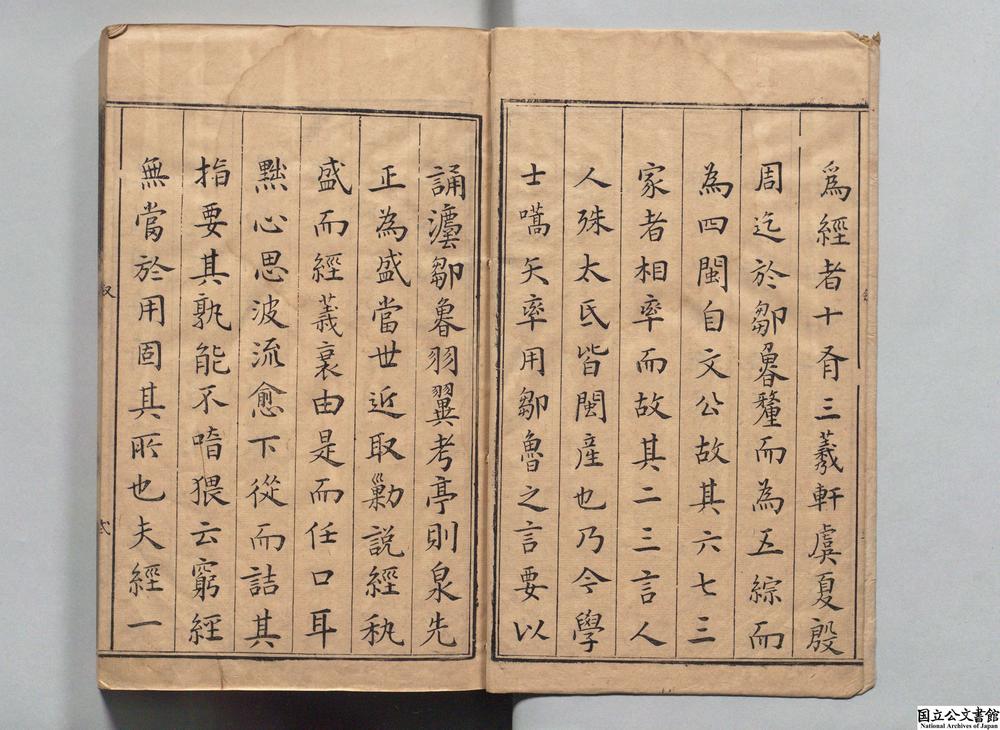 爲經者十有三羲軒虞夏殷
周迄於鄒魯釐而為五綜而
為四閩自文公故其六七三
家者相率而故其二三言人
人殊太氐皆閩産也乃今學
士嚆矢率用鄒魯之言要以
誦灋鄒魯羽翼考亭則泉先
正為盛當世近取勦説經秇
盛而經義衰由是而任口耳
黜心思波流愈下從而詰其
指要其孰能不喑猥云窮經
無當於用固其所也夫經一
国立公文書館
National Archives of Japan